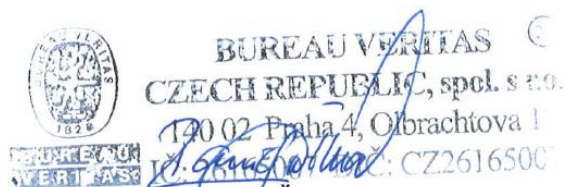 BUREAU VERITAS
CZECH REPUBLIC, spol. s r.o.
140 02 Praha 4, Olbrachtova 1
CZ2616500
1828
BUREAU
VERITAS